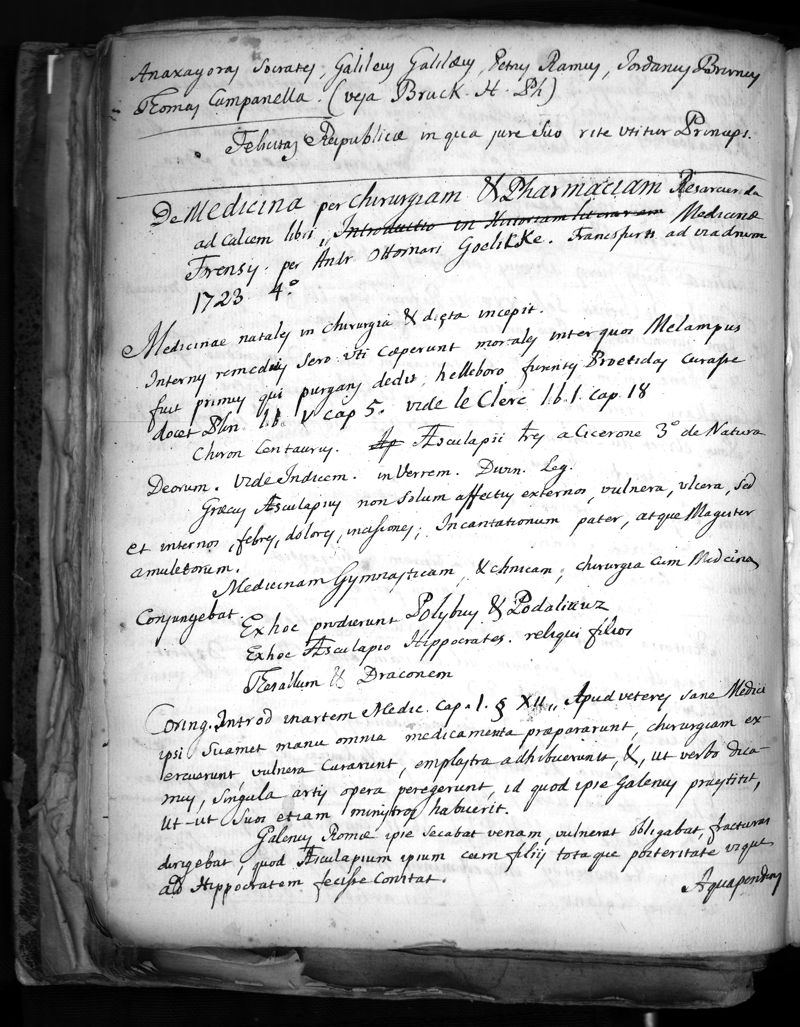 Anaxagoras Socrates, Galileus Galilæus, Petrus Ramus, Jordanus Brunus
Thomas Campanella. (veja Bruck. H. Ph)
Felicitas Reipublicæ in qua jure suo rite utitur Princeps.
De Medicina per chirurgiam & Pharmaciam Resarcienda
ad calcem libri „ Introductio in Historiam literariam Medicinæ
Forensis. per Andr Ottomari Goelikke. Francofurti ad viadrum
1723 4.º
Medicinae natales in chirurgia & diæta incepit.
Internis remediis sero uti cæperunt mortales inter quos Melampus
fuit primus qui purgans dedit; helleboro furentes Proetidas curasse
docet Plin lib. V cap 5. vide le Clerc lib. 1. cap. 18
Chiron Centaurus. Ap Æsculapii tres a Cicerone 3º de Natura
Deorum. vide Indicem. in Verrem. Divin. Leg.
Græcus Æsculapius non solum affectus externos, vulnera, ulcera, sed
et internos, febres, dolores, incisiones; Incantationum pater, atque Magister
amuletorum.
Medicinam Gymnasticam, & clinicam; chirurgia cum Medicina
Conjungebat.
Ex hoc prodierunt Polybus & Podalirius
Ex hoc Æsculapio Hippocrates. reliqui filios
Thesallum & Draconem
Coring. Introd in artem Medic. Cap. 1. § XII „ Apud veteres sane Medici
ipsi suamet manu omnia medicamenta præpararunt, chirurgiam ex
ercuerunt, vulnera curarunt, emplastra adhibuerunt, &, ut verbo dica-
mus, singula artis opera peregerunt, id quod ipse Galenus præstitit,
ut-ut suos etiam ministros habuerit.
Galenus Romæ ipse secabat venam, vulnera obligabat, fracturas
dirigebat, quod Æsculapium ipsum cum filiis totaque posteritate usque
ad Hippocratem fecisse constat.
Aquapendens